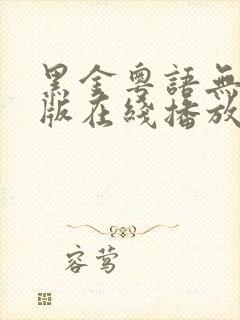 黑金粵語無
版在綫播放
容莺